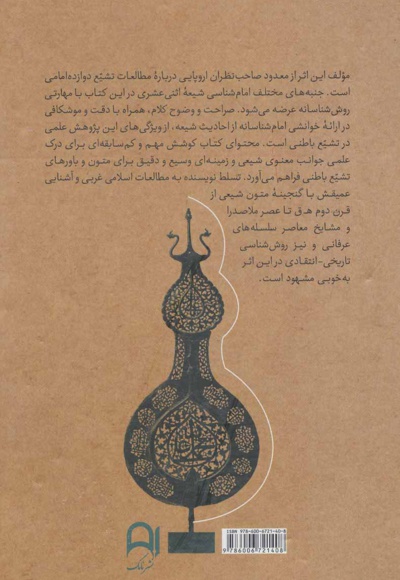 مؤلف این اثر از معدود صاحب‌نظران اروپایی دربارهٔ مطالعات تشیّع دوازده‌امامی
است. جنبه‌های مختلف امام‌شناسی شیعهٔ اثنی‌عشری در این کتاب با مهارتی
روش‌شناسانه عرضه می‌شود. صراحت و وضوح کلام، همراه با دقت و موشکافی
در ارائهٔ خوانشی امام‌شناسانه از احادیث شیعه، از ویژگی‌های این پژوهش علمی
در تشیّع باطنی است. محتوای کتاب کوشش مهم و کم‌سابقه‌ای برای درک
علمی جوانب معنوی شیعی و زمینه‌ای وسیع و دقیق برای متون و باورهای
تشیّع باطنی فراهم می‌آورد. تسلط نویسنده به مطالعات اسلامی غربی و آشنایی
عمیقش با گنجینهٔ متون شیعی از
قرن دوم ه‍.ق تا عصر ملاصدرا
و مشایخ معاصر سلسله‌های
عرفانی و نیز روش‌شناسی
تاریخی-انتقادی در این اثر
به‌خوبی مشهود است.
ISBN 978-600-6721-40-8
9786006721408
نشر نامک